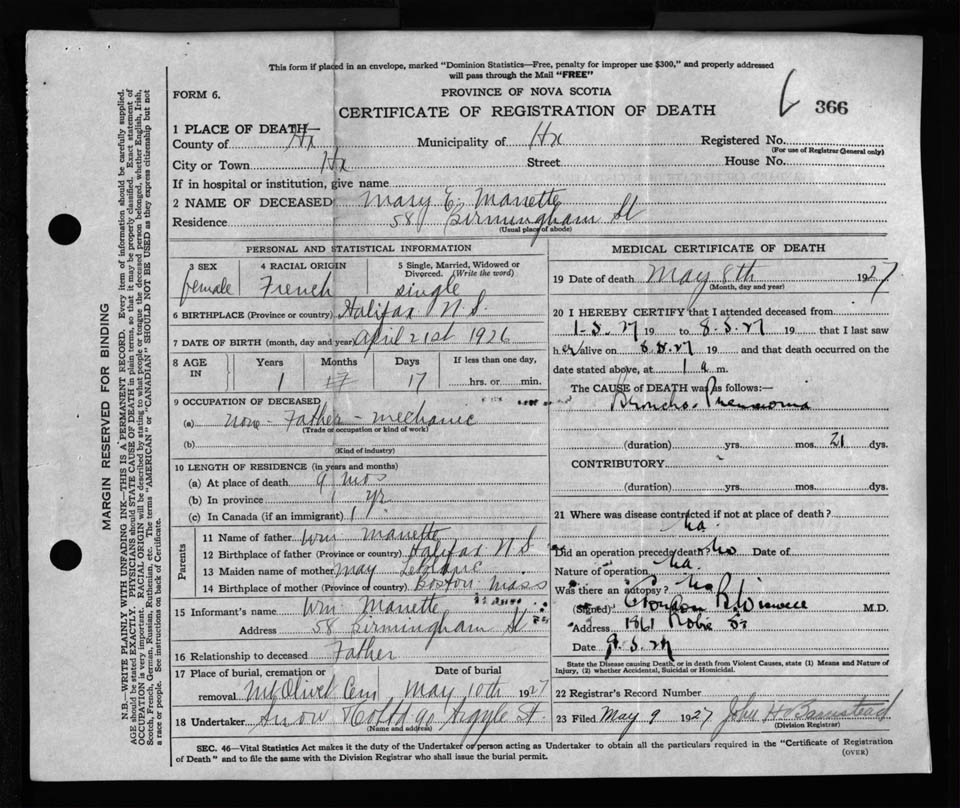 This form if placed in an envelope, marked "Dominion Statistics—Free, penalty for improper use $300," and properly addressed
will pass through the Mail "FREE"
FORM 6.
PROVINCE OF NOVA SCOTIA
CERTIFICATE OF REGISTRATION OF DEATH
366
1 PLACE OF DEATH—
County of Hx Municipality of Hx Registered No.
(For use of Registrar General only)
City or Town Hx Street House No.
If in hospital or institution, give name
2 NAME OF DECEASED Mary E. Manette
Residence 58 Birmingham St
(Usual place of abode)
PERSONAL AND STATISTICAL INFORMATION
3 SEX 4 RACIAL ORIGIN 5 Single, Married, Widowed or
Divorced. (Write the word)
female French single
6 BIRTHPLACE (Province or country) Halifax N.S.
7 DATE OF BIRTH (month, day and year) April 21st 1926
8 AGE IN Years Months Days If less than one day,
1 17 17 hrs. or min.
9 OCCUPATION OF DECEASED
(a) None - Father - mechanic
(Trade or occupation or kind of work)
(b)
(Kind of industry)
10 LENGTH OF RESIDENCE (in years and months)
(a) At place of death 9 mos
(b) In province 1 yr
(c) In Canada (if an immigrant) 1
Parents
11 Name of father Wm Manette
12 Birthplace of father (Province or country) Halifax N S
13 Maiden name of mother May
14 Birthplace of mother (Province or country) Boston Mass
15 Informant's name Wm Manette
Address 58 Birmingham St
16 Relationship to deceased Father
17 Place of burial, cremation or Date of burial
removal Mt Olivet Cem May 10th 1927
18 Undertaker Snow Argyle St.
(Name and address)
MEDICAL CERTIFICATE OF DEATH
19 Date of death May 8th 1927
(Month, day and year)
20 I HEREBY CERTIFY that I attended deceased from
1-5-27 19 to 8-5-27 19 that I last saw
her alive on 8.5.27 19 and that death occurred on the
date stated above, at 1 a m.
The CAUSE of DEATH was as follows:—
Broncho-Pneumonia
(duration) yrs. mos. 21 dys.
CONTRIBUTORY
(duration) yrs. mos. dys.
21 Where was disease contracted if not at place of death?
Did an operation precede death? No Date of
Nature of operation
Was there an autopsy? No
(Signed) M.D.
Address Robie St
Date 9.5.27
State the Disease causing Death, or in death from Violent Causes, state (1) Means and Nature of
Injury, (2) whether Accidental, Suicidal or Homicidal.
22 Registrar's Record Number
23 Filed May 9 1927 John H Barnstead
(Division Registrar)
SEC. 46—Vital Statistics Act makes it the duty of the Undertaker or person acting as Undertaker to obtain all the particulars required in the "Certificate of Registration
of Death" and to file the same with the Division Registrar who shall issue the burial permit.
(OVER)
MARGIN RESERVED FOR BINDING
N.B.—WRITE PLAINLY WITH UNFADING INK—THIS IS A PERMANENT RECORD. Every item of information should be carefully supplied.
AGE should be stated EXACTLY. PHYSICIANS should STATE CAUSE OF DEATH in plain terms, so that it may be properly classified. Exact statement of
OCCUPATION is very important. RACIAL ORIGIN will be described by stating to what people or tongue the deceased person belonged, whether English, Irish,
Scotch, French, German, Russian, Ruthenian, etc. The terms "AMERICAN" or "CANADIAN" SHOULD NOT BE USED as they express citizenship but not
a race or people. See instructions on back of Certificate.